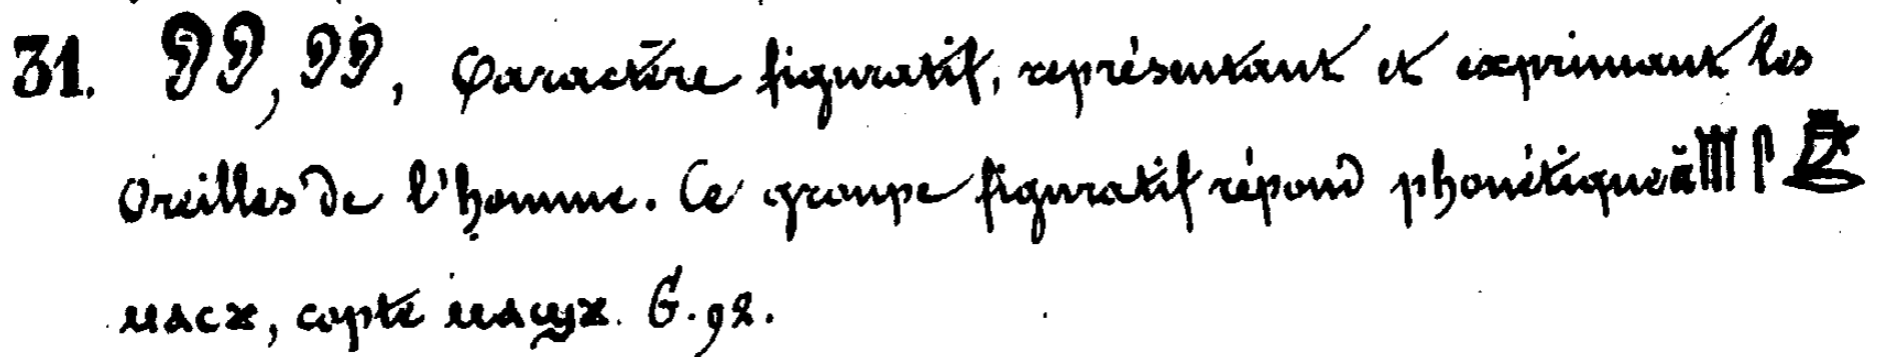 31. 𓂈𓂈, 𓂈𓂈, Caractère figuratif, représentant et exprimant les
Oreilles de l'homme. Ce groupe figuratif répond phonétiqu à
ⲙⲁⲥϫ, copte ⲙⲁϣϫ. G. 92.